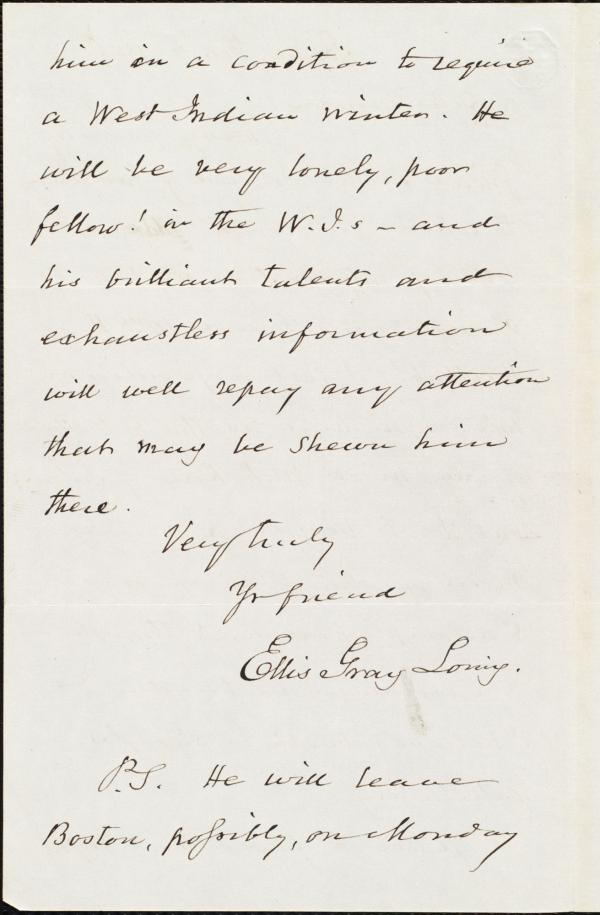 him in a condition to require
a West Indian winter. He
will be very lonely, poor
fellow! in the W.I.s - and
his brilliant talents and
exhaustless information
will well repay any attention
that may be shewn him
there.
Very truly
Yr friend
Ellis Gray Loring.
P.S. He will leave
Boston, possibly, on Monday